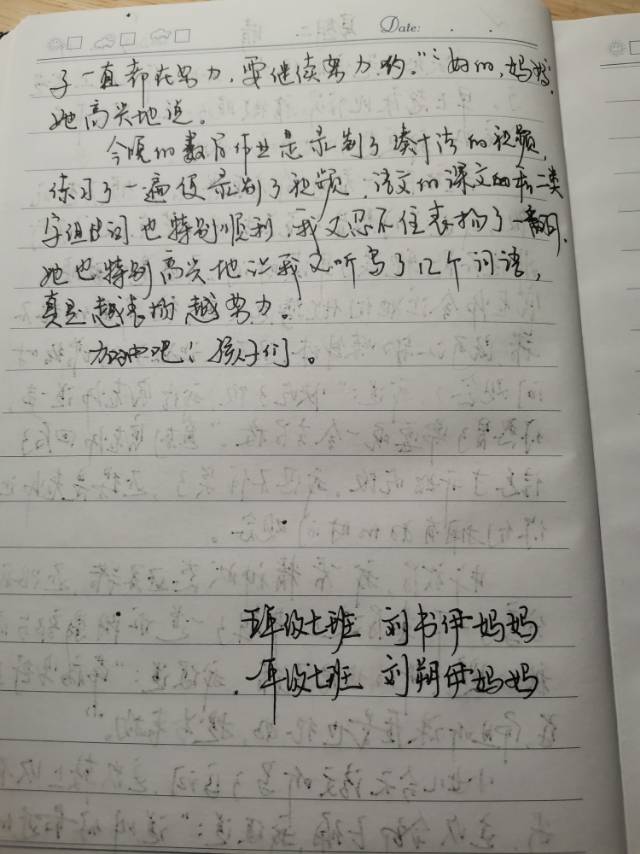 Date:
子一直都在努力，要继续努力哟。”“好的，妈妈”，
她高兴地说。
今晚的数学作业是录制了凑十法的视频，
练习了一遍便录制了视频，语文的课文的和二类
字组词也特别顺利，我又忍不住表扬了一番，
她也特别高兴地让我又听写了12个词语，
真是越表扬越努力。
加油吧！孩子们。
五年级七班 刘书伊妈妈
一年级七班 刘朔伊妈妈